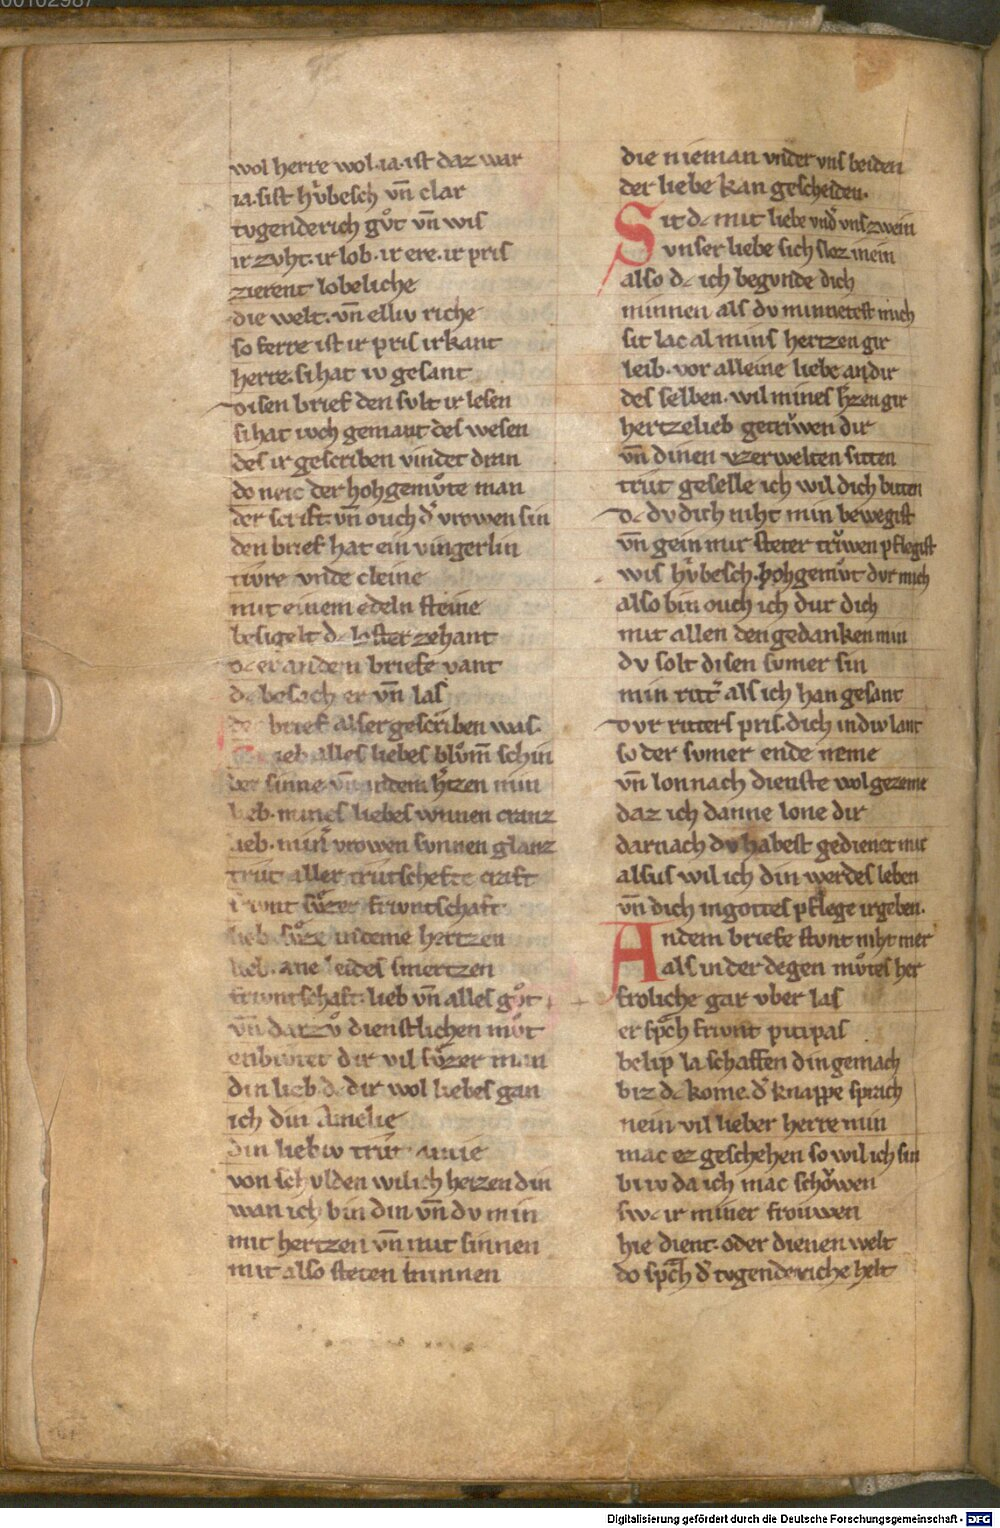 00102987
wol herre wol.ia.ist daz war
ia.sist hv̊besch vn̄ clar
tvgenderich gv̊t vn̄ wis
ir zvht.ir lob.ir ere.ir pris
zierent lobeliche
die welt.vn̄ elliv riche
so verre ist ir pris irkant
herre.si hat iv gesant
disen brief den svlt ir lesen
si hat ivch gemant des wesen
des ir gescriben vindet dran
do neic der hohgemv̊te man
der scrift.vn̄ ouch d͛ vrowen sin
den brief hat ein vingerlin
tivre vnde cleine
mit einem edeln steine
besigelt dc loster zehant
dc er an dem briefe vant
dc besach er vn̄ las
der brief alser gescriben was.
Lieb alles liebes blv̊m̄ schin
der sinne vn̄ in dem h͛tzen min
lieb.mines liebes wnnen cranz
lieb.min͛ vrowen svnnen glanz
trut aller trutschefte craft
frivnt sv̊zer frivntschaft
lieb sv̊ze in deme hertzen
lieb.ane leides smertzen
frivntschaft.lieb vn̄ alles gv̊t
vn̄ dar zv̊ dienstlichen mv̊t
enbivtet dir vil sv̊zer man
din lieb.dc dir wol liebes gan
ich din Amelie
din liebiv trut amie
von schvlden wil ich heizen din
wan ich bin din vn̄ dv min
mit hertzen vn̄ mit sinnen
mit also steten minnen
die nieman vnder vns beiden
der liebe kan gescheiden.
Sit dc mit liebe vnd͛ vns zwein
vnser liebe sich sloz in ein
also dc ich begvnde dich
minnen als dv minnetest mich
sit lac al mins hertzen gir
leib.vor alleine liebe an dir
des selben.wil mines h͛zen gir
hertzelieb getrv̊wen dir
vn̄ dinen vzerwelten sitten
trut geselle ich wil dich bitten
dc dv dich niht min bewegist
vn̄ gein mir steter trv̊wen pflegist
wis hv̊besch.hohgemv̊t dvr mich
also bin ouch ich dur dich
mit allen den gedanken min
dv solt disen svmer sin
min ritt͛ als ich han gesant
dvr ritters pris.dich in div lant
so der svmer ende neme
vn̄ lon nach dienste wol gezeme
daz ich danne lone dir
darnach dv habest gedienet mir
alsus wil ich din werdes leben
vn̄ dich in gottes pflege irgeben.
An dem briefe stvnt niht mer
als in der degen mv̊tes her
froliche gar vber las
er sp̄ch frivnt pitipas
belip la schaffen din gemach
biz dc kome.d͛ knappe sprach
nein vil lieber herre min
mac ez geschehen so wil ich sin
bi iv da ich mac schǒwen
swc ir miner frouwen
hie dient.oder dienen welt
do sp̄ch d͛ tvgenderiche helt
Digitalisierung gefördert durch die Deutsche Forschungsgemeinschaft - DFG